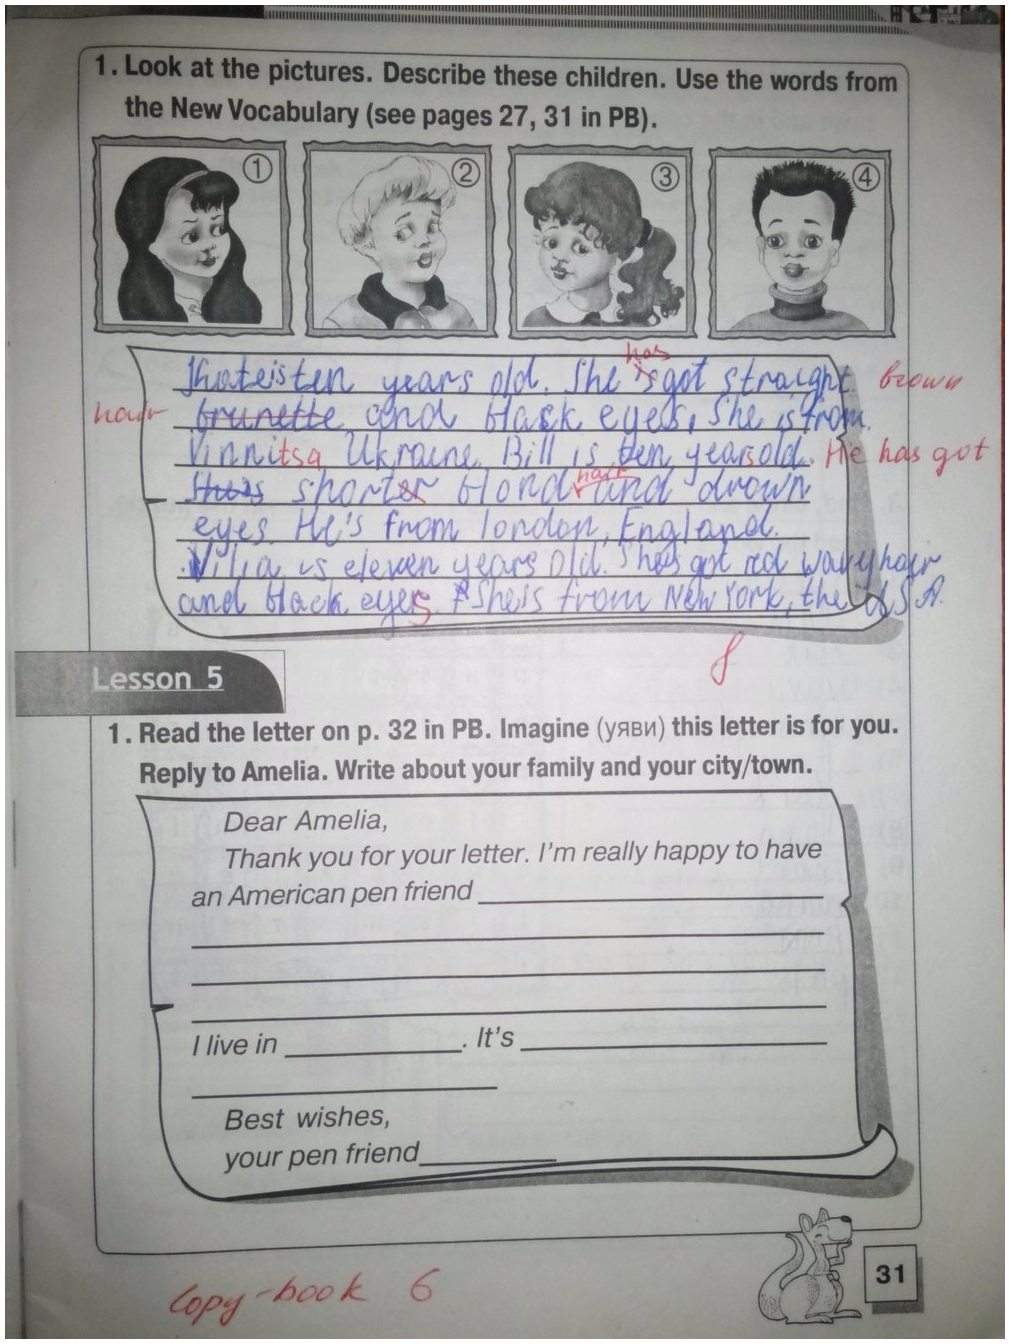 1. Look at the pictures. Describe these children. Use the words from
the New Vocabulary (see pages 27, 31 in PB).
1 2 3 4
has
is ten years old. She 's got straight brown
hair brunette and black eyes. She is from
Vinnitsa Ukraine. Bill is ten years old. He has got
hair
She's shorter blond and drown
eyes. He's from london, England.
is eleven years old. She's got red wavy hair
and black eyes. She is from New York, the U.S.A.
8
Lesson 5
1. Read the letter on p. 32 in PB. Imagine (уяви) this letter is for you.
Reply to Amelia. Write about your family and your city/town.
Dear Amelia,
Thank you for your letter. I'm really happy to have
an American pen friend
I live in . It's
Best wishes,
your pen friend
31
copy-book 6